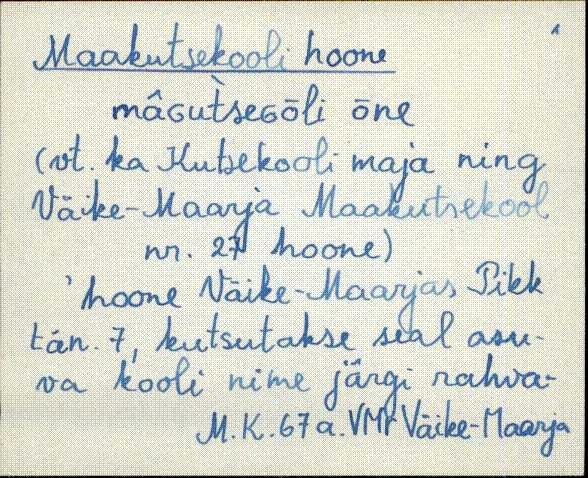 1
Maakutsekooli hoone
mâɢùtseɢōli ōne
(vt. ka Kutsekooli maja ning
Väike-Maarja Maakutsekool
nr. 27 hoone)
'hoone Väike-Maarjas Pikk
tän. 7, kutsutakse seal asu-
va kooli nime järgi rahva-
M.K. 67 a. VMr Väike-Maarja